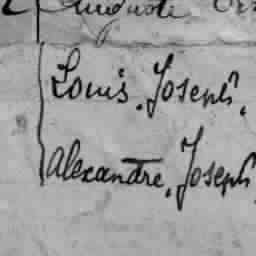 Louis, Joseph,
alexandre, Joseph